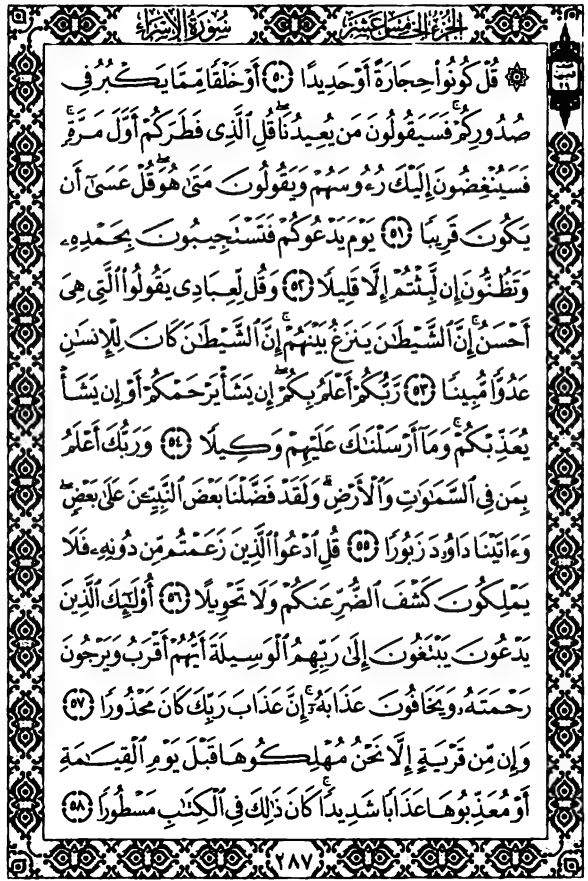 سُورَةُ الإِسْرَاءِ
الجُزْءُ الخَامِسَ عَشَرَ
۞ قُلْ كُونُواْ حِجَارَةً أَوْ حَدِيدًا ٥٠ أَوْ خَلْقًا مِّمَّا يَكْبُرُ فِي
صُدُورِكُمْ ۚ فَسَيَقُولُونَ مَن يُعِيدُنَا ۖ قُلِ ٱلَّذِى فَطَرَكُمْ أَوَّلَ مَرَّةٍ ۚ
فَسَيُنْغِضُونَ إِلَيْكَ رُءُوسَهُمْ وَيَقُولُونَ مَتَىٰ هُوَ ۖ قُلْ عَسَىٰٓ أَن
يَكُونَ قَرِيبًا ٥١ يَوْمَ يَدْعُوكُمْ فَتَسْتَجِيبُونَ بِحَمْدِهِۦ
وَتَظُنُّونَ إِن لَّبِثْتُمْ إِلَّا قَلِيلًا ٥٢ وَقُل لِّعِبَادِى يَقُولُواْ ٱلَّتِى هِىَ
أَحْسَنُ ۚ إِنَّ ٱلشَّيْطَٰنَ يَنزَغُ بَيْنَهُمْ ۚ إِنَّ ٱلشَّيْطَٰنَ كَانَ لِلْإِنسَٰنِ
عَدُوًّا مُّبِينًا ٥٣ رَّبُّكُمْ أَعْلَمُ بِكُمْ ۖ إِن يَشَأْ يَرْحَمْكُمْ أَوْ إِن يَشَأْ
يُعَذِّبْكُمْ ۚ وَمَآ أَرْسَلْنَٰكَ عَلَيْهِمْ وَكِيلًا ٥٤ وَرَبُّكَ أَعْلَمُ
بِمَن فِى ٱلسَّمَٰوَٰتِ وَٱلْأَرْضِ ۗ وَلَقَدْ فَضَّلْنَا بَعْضَ ٱلنَّبِيِّـۧنَ عَلَىٰ بَعْضٍ ۖ
وَءَاتَيْنَا دَاوُۥدَ زَبُورًا ٥٥ قُلِ ٱدْعُواْ ٱلَّذِينَ زَعَمْتُم مِّن دُونِهِۦ فَلَا
يَمْلِكُونَ كَشْفَ ٱلضُّرِّ عَنكُمْ وَلَا تَحْوِيلًا ٥٦ أُوْلَٰٓئِكَ ٱلَّذِينَ
يَدْعُونَ يَبْتَغُونَ إِلَىٰ رَبِّهِمُ ٱلْوَسِيلَةَ أَيُّهُمْ أَقْرَبُ وَيَرْجُونَ
رَحْمَتَهُۥ وَيَخَافُونَ عَذَابَهُۥٓ ۚ إِنَّ عَذَابَ رَبِّكَ كَانَ مَحْذُورًا ٥٧
وَإِن مِّن قَرْيَةٍ إِلَّا نَحْنُ مُهْلِكُوهَا قَبْلَ يَوْمِ ٱلْقِيَٰمَةِ
أَوْ مُعَذِّبُوهَا عَذَابًا شَدِيدًا ۚ كَانَ ذَٰلِكَ فِى ٱلْكِتَٰبِ مَسْطُورًا ٥٨
٢٨٧